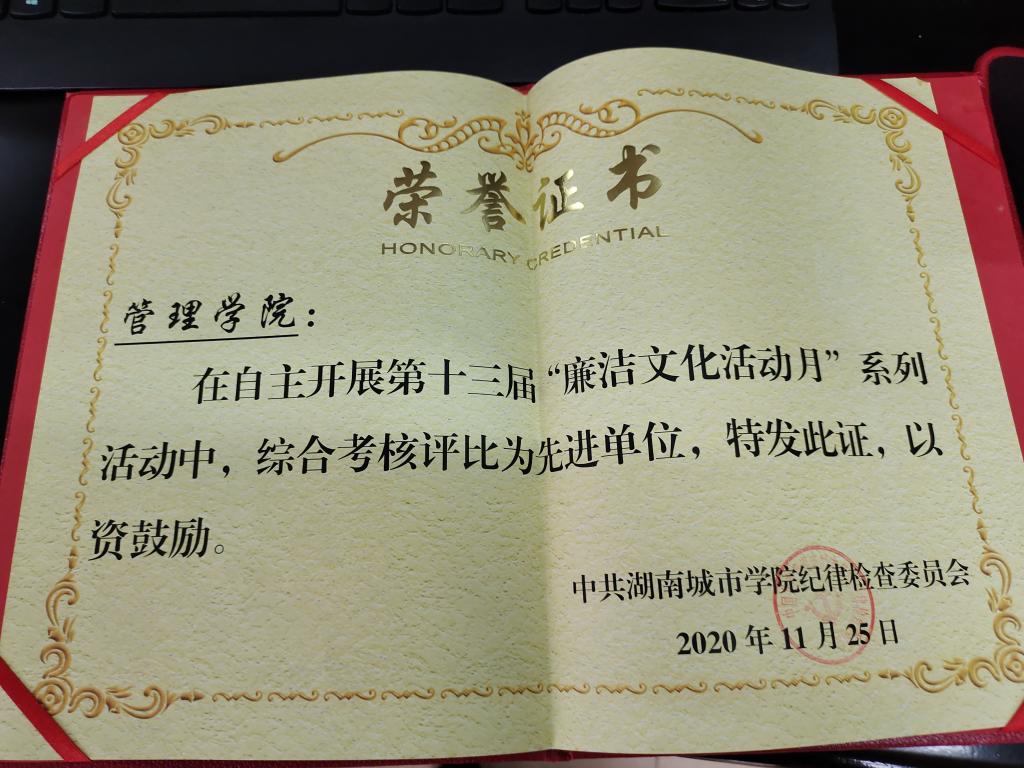 荣誉证书
HONORARY CREDENTIAL
管理学院：
在自主开展第十三届“廉洁文化活动月”系列
活动中，综合考核评比为先进单位，特发此证，以
资鼓励。
中共湖南城市学院纪律检查委员会
2020年11月25日